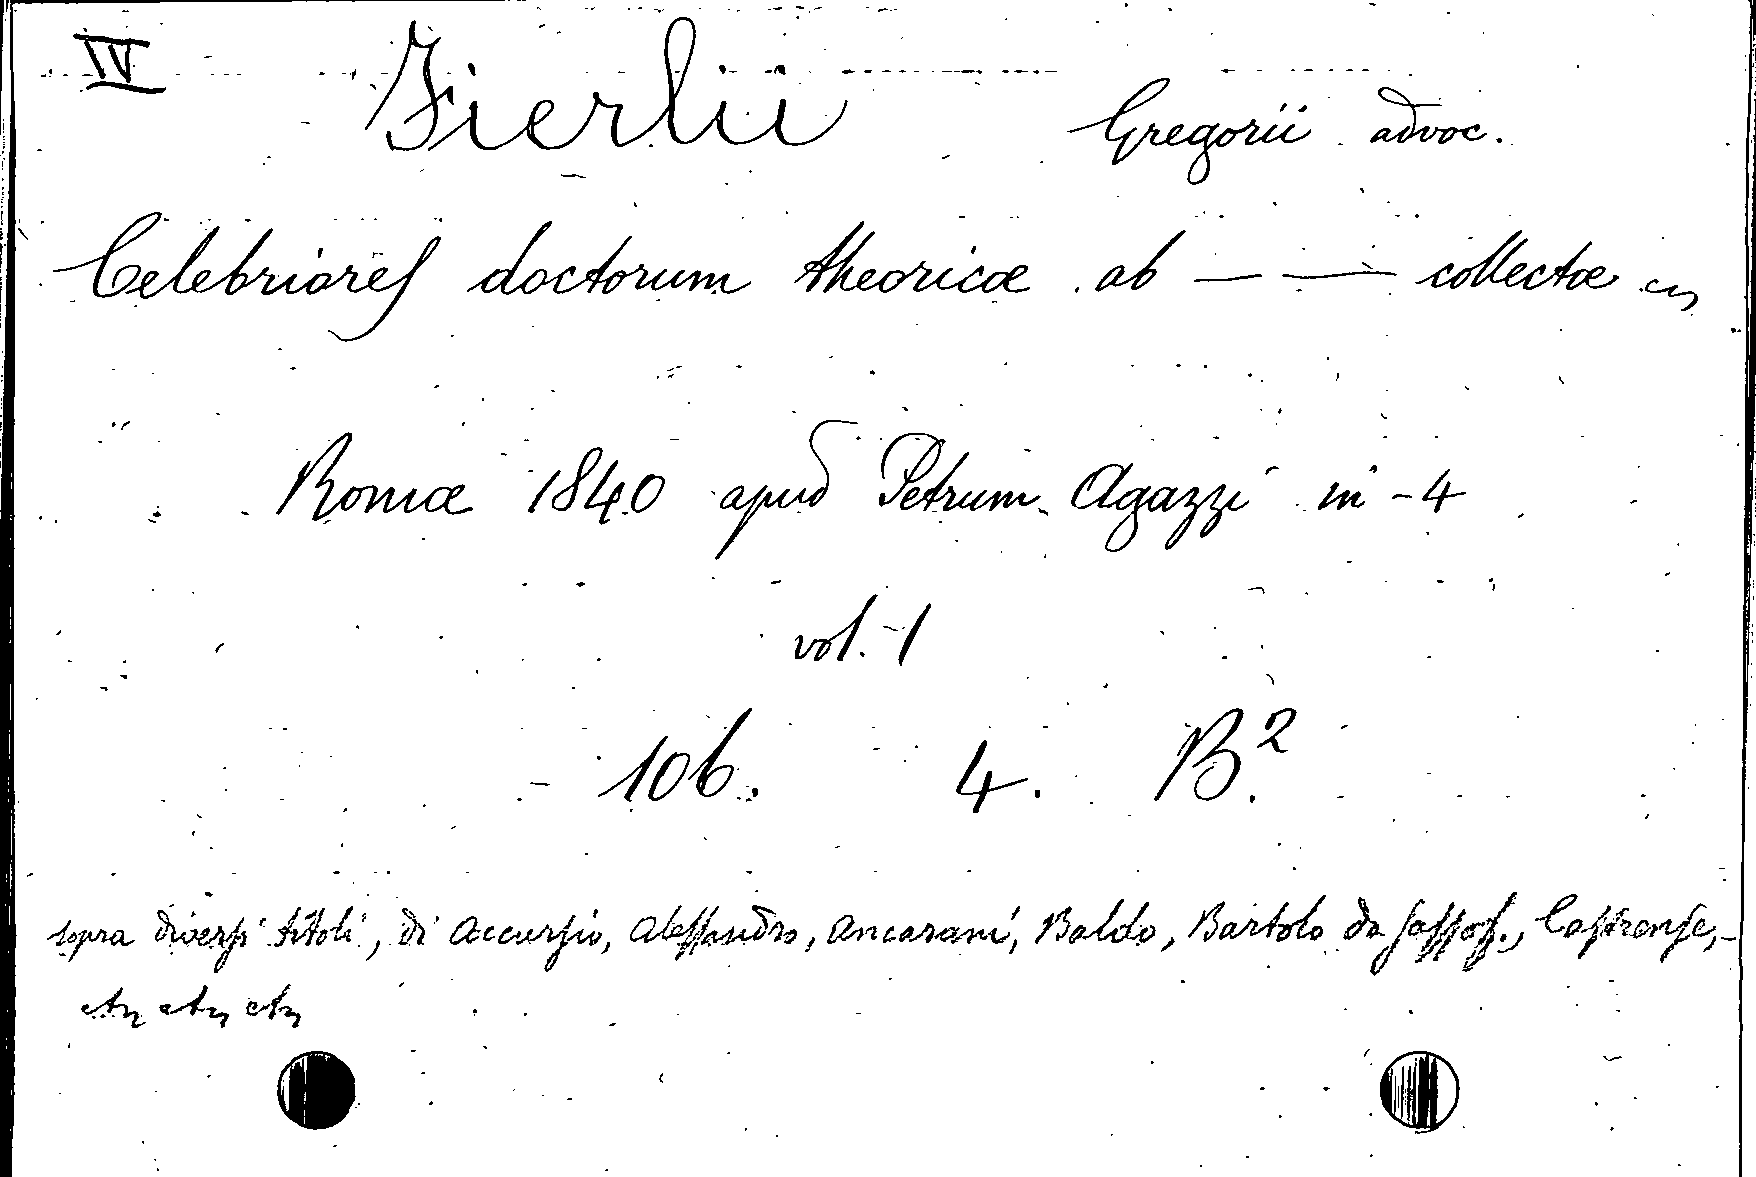 IV Fierlii Gregorii advoc.
Celebriores doctorum theoricæ ab — — collectæ
Romæ 1840 apud Petrum Agazzi in-4
vol. 1
106. 4. B.2
sopra diversi titoli, di Accursio, Alessandro, Ancarani, Baldo, Bartolo da Sassof., Castrense,
etc etc etc